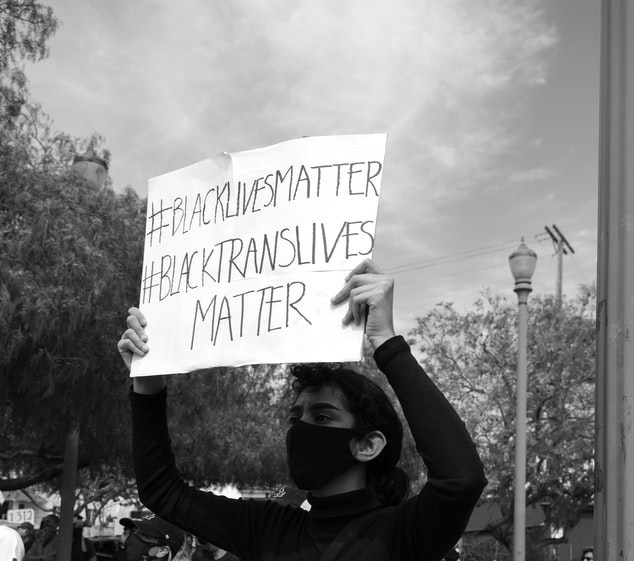 #BLACKLIVESMATTER
#BLACKTRANSLIVES
MATTER
1312